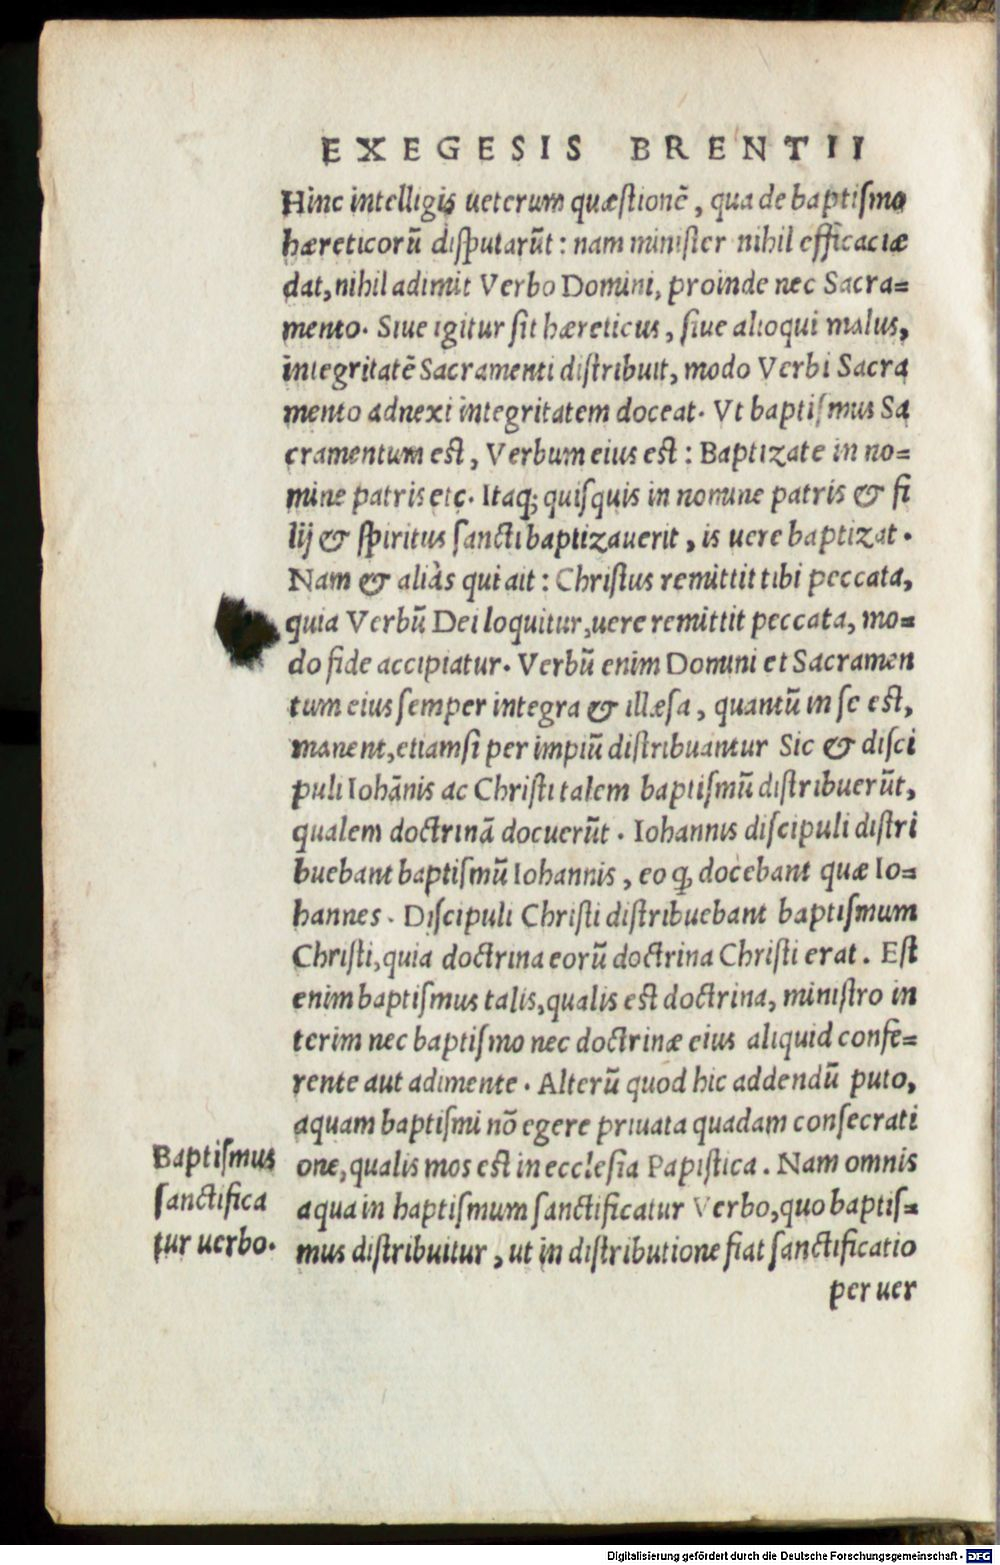 EXEGESIS BRENTII
Hinc intelligis ueterum quæstionē, qua de baptiſmo
hæreticorū diſputarūt: nam miniſter nihil efficaciæ
dat, nihil adimit Verbo Domini, proinde nec Sacra=
mento. Siue igitur ſit hæreticus, ſiue alioqui malus,
integritatē Sacramenti diſtribuit, modo Verbi Sacra
mento adnexi integritatem doceat. Vt baptiſmus Sa
cramentum eſt, Verbum eius eſt: Baptizate in no=
mine patris etc. Itaq; quiſquis in nomine patris & fi
lij & ſpiritus ſancti baptizauerit, is uere baptizat.
Nam & aliàs qui ait: Chriſtus remittit tibi peccata,
quia Verbū Dei loquitur, uere remittit peccata, mo=
do fide accipiatur. Verbū enim Domini et Sacramen
tum eius ſemper integra & illæſa, quantū in ſe eſt,
manent, etiamſi per impiū diſtribuantur Sic & diſci
puli Iohānis ac Chriſti talem baptiſmū diſtribuerūt,
qualem doctrinā docuerūt. Iohannis diſcipuli diſtri
buebant baptiſmū Iohannis, eo ꝙ docebant quæ Io=
hannes. Diſcipuli Chriſti diſtribuebant baptiſmum
Chriſti, quia doctrina eorū doctrina Chriſti erat. Eſt
enim baptiſmus talis, qualis eſt doctrina, miniſtro in
terim nec baptiſmo nec doctrinæ eius aliquid confe=
rente aut adimente. Alterū quod hic addendū puto,
aquam baptiſmi nō egere priuata quadam conſecrati
one, qualis mos eſt in eccleſia Papiſtica. Nam omnis
aqua in baptiſmum ſanctificatur Verbo, quo baptiſ=
mus diſtribuitur, ut in diſtributione fiat ſanctificatio
per uer
Baptiſmus
ſanctifica
tur uerbo.
Digitalisierung gefördert durch die Deutsche Forschungsgemeinschaft - DFG